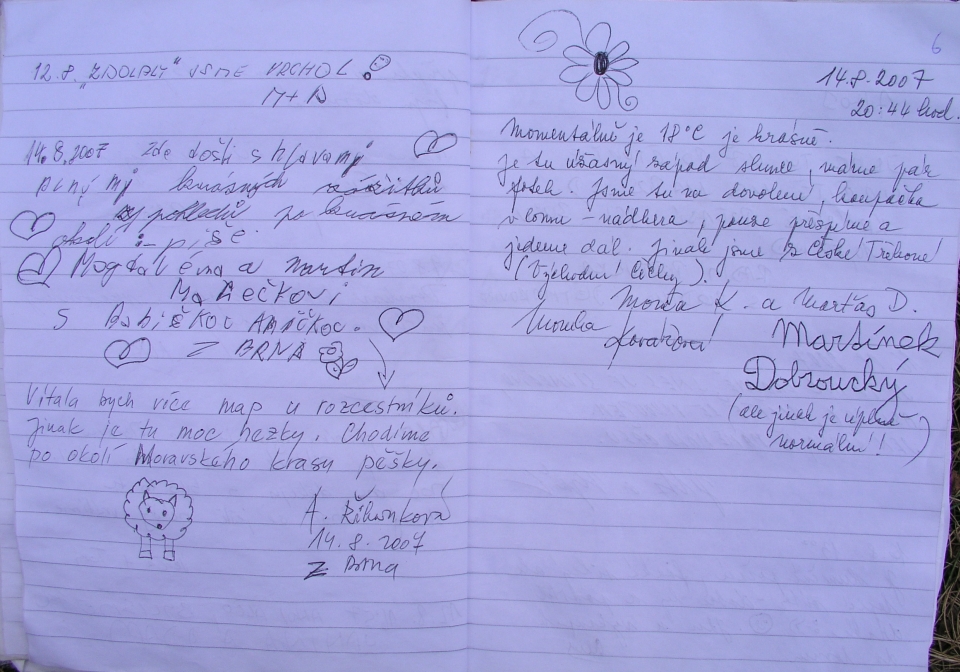 12.8. „ZDOLALY" JSME VRCHOL!
M+D
14.8.2007 zde došli s hlavamy
plnými krásných zážitků
z pokladů po krásném
okolí :- píše:
Magdaléna a Martin
Mašečkovi
S Babičkou Aničkou.
Z BRNA
Vítala bych více map u rozcestníků.
Jinak je tu moc hezky. Chodíme
po okolí Moravského krasu pěšky.
A.
14.8.2007
Z Brna
6
14.8.2007
20:44 hod.
Momentálně je 18°C je krásně.
je tu úžasný západ slunce, máme pár
fotek. Jsme tu na dovolené, koupačka
v lomu – nádhera, pouze přespíme a
jedeme dál. Jinak jsme z České Třebové
(Východní Čechy).
Monča K. a Marťas D.
Monika
Kovářová
Martínek
Dobroucký
(ale jinak je úplně
normální!!)